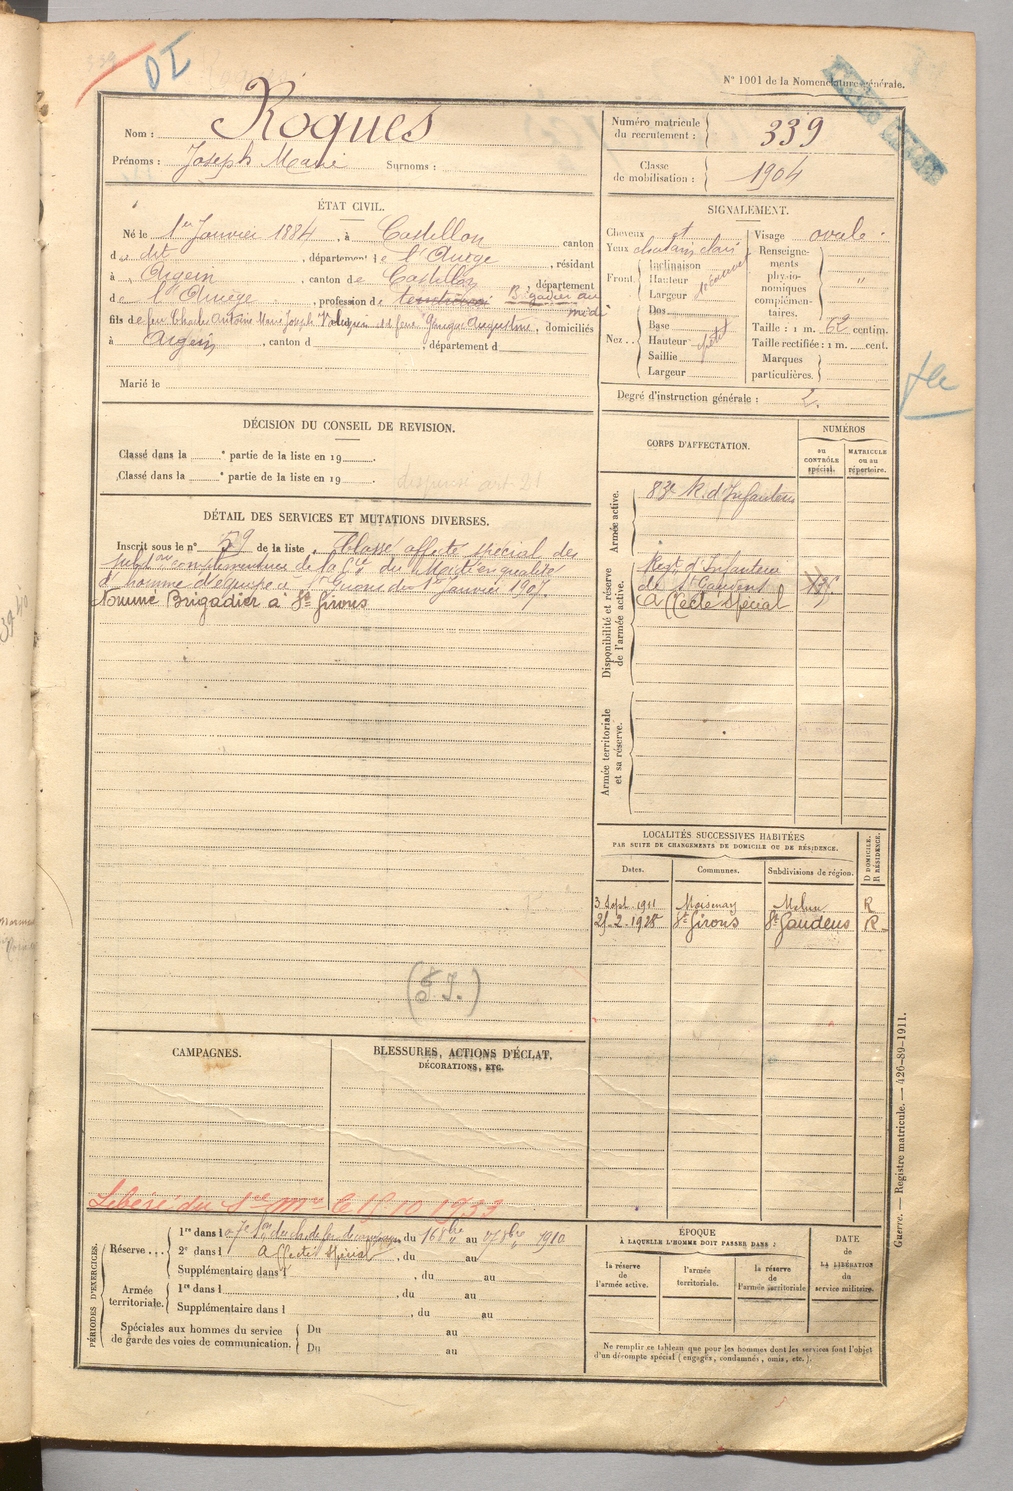 339
DI
N° 1001 de la Nomenclature générale.
Nom : Roques
Prénoms : Joseph Marie Surnoms :
Numéro matricule du recrutement : 339
Classe de mobilisation : 1904
ÉTAT CIVIL.
Né le 1er Janvier 1884, à Castillon canton
du dit, département de l'Ariège, résidant
à Argein, canton de Castillon, département
de l'Ariège, profession de Brigadier au
midi
fils de feu Charles Antoine Marie Joseph et de feue Augustine, domiciliés
à Argein, canton d , département d
Marié le
SIGNALEMENT.
Cheveux et
Yeux chatain clair
Front Inclinaison
Hauteur
Largeur
Nez Dos
Base
Hauteur
Saillie
Largeur
Visage ovale
Renseignements physionomiques complémentaires. "
Taille : 1 m. 62 centim.
Taille rectifiée : 1 m. cent.
Marques particulières.
Degré d'instruction générale : 2.
DÉCISION DU CONSEIL DE REVISION.
Classé dans la e partie de la liste en 19 .
Classé dans la e partie de la liste en 19 .
dispensé art 21
DÉTAIL DES SERVICES ET MUTATIONS DIVERSES.
Inscrit sous le n° 79 de la liste. Classé affecté spécial des
subdons complémentaires de la Cie du Midi en qualité
d'homme d'équipe à St Girons du 1er Janvier 190
Nommé Brigadier à St Girons
(S I.)
CORPS D'AFFECTATION.
NUMÉROS
au CONTRÔLE spécial.
MATRICULE ou au répertoire.
Armée active.
83e R. d'Infanterie
Disponibilité et réserve de l'armée active.
Regt d'Infanterie
de St Gaudens
affecté spécial
Armée territoriale et sa réserve.
LOCALITÉS SUCCESSIVES HABITÉES
PAR SUITE DE CHANGEMENTS DE DOMICILE OU DE RÉSIDENCE.
Dates. Communes. Subdivisions de région. D DOMICILE. R RÉSIDENCE.
3 Sept. 1911 Moisenay Melun R
2-1928 St Girons St Gaudens R
CAMPAGNES.
BLESSURES, ACTIONS D'ÉCLAT,
DÉCORATIONS, ETC.
Libéré du Sce Mre le 15 10 1933
PÉRIODES D'EXERCICES.
Réserve
1re dans l a 7e Son de ch. de fer de campagne du 16 8bre au 8bre 1910
2e dans l Affecté spécial, du au
Supplémentaire dans l , du au
Armée territoriale.
1re dans l , du au
Supplémentaire dans l , du au
Spéciales aux hommes du service de garde des voies de communication.
Du au
Du au
ÉPOQUE
À LAQUELLE L'HOMME DOIT PASSER DANS :
la réserve de l'armée active.
l'armée territoriale.
la réserve de l'armée territoriale
DATE de LA LIBÉRATION du service militaire.
Ne remplir ce tableau que pour les hommes dont les services font l'objet
d'un décompte spécial (engagés, condamnés, omis, etc.).
Guerre. — Registre matricule. — 426-89-1911.